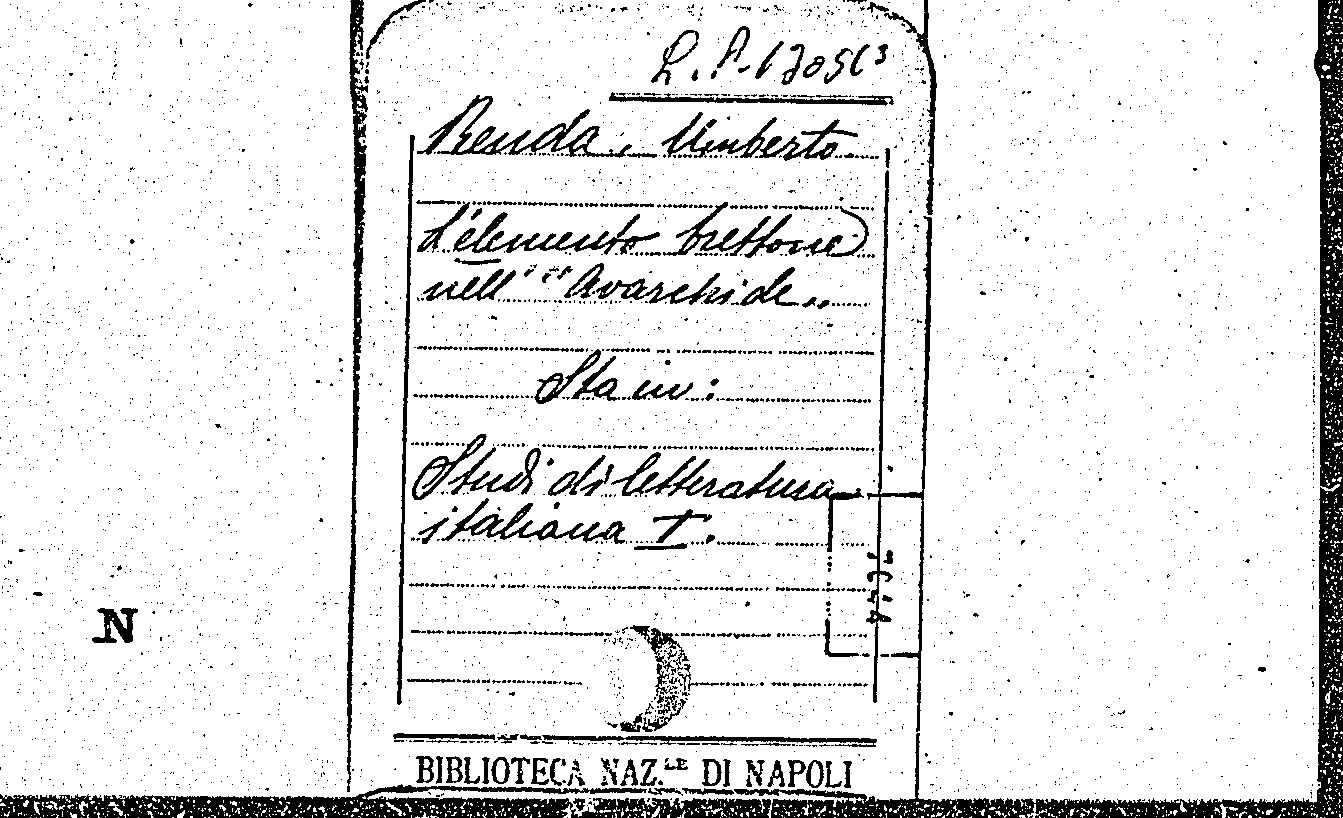 Renda, Umberto.
L'elemento brettone
nell' "Avarchide„
Sta in:
Studi di letteratura
italiana I.
N
BIBLIOTECA NAZ.LE DI NAPOLI